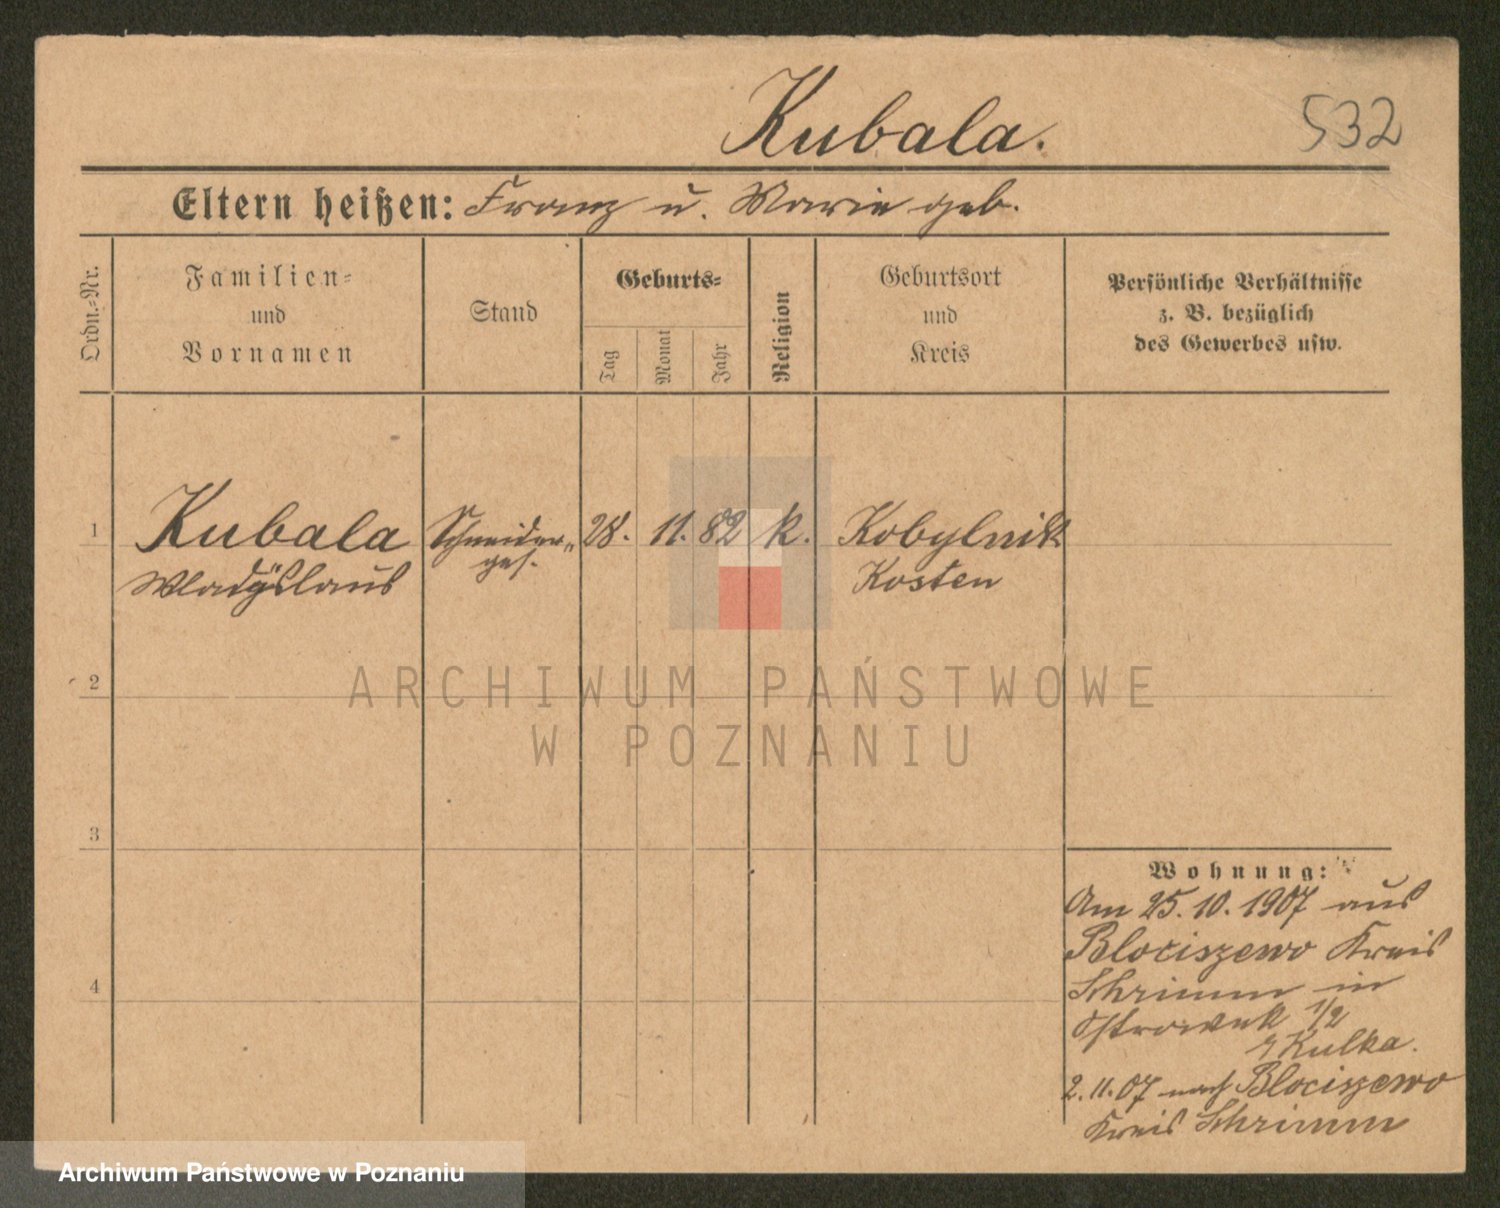 Kubala.
532
Eltern heißen: Franz u. Marie geb.
Ordn.=Nr.
Familien=
und
Vornamen
Stand
Geburts=
Tag
Monat
Jahr
Religion
Geburtsort
und
Kreis
Persönliche Verhältnisse
z. B. bezüglich
des Gewerbes usw.
1
Kubala
Wladyslaus
Schneider"
ges.
28. 11. 82
k.
Kobylnik
Kosten
2
3
4
ARCHIWUM PAŃSTWOWE
W POZNANIU
Wohnung:
Am 25.10.1907 aus
Blociszewo Kreis
Schrimm in
1/2
Kulka.
2.11.07 nach Blociszewo
Kreis Schrimm
Archiwum Państwowe w Poznaniu